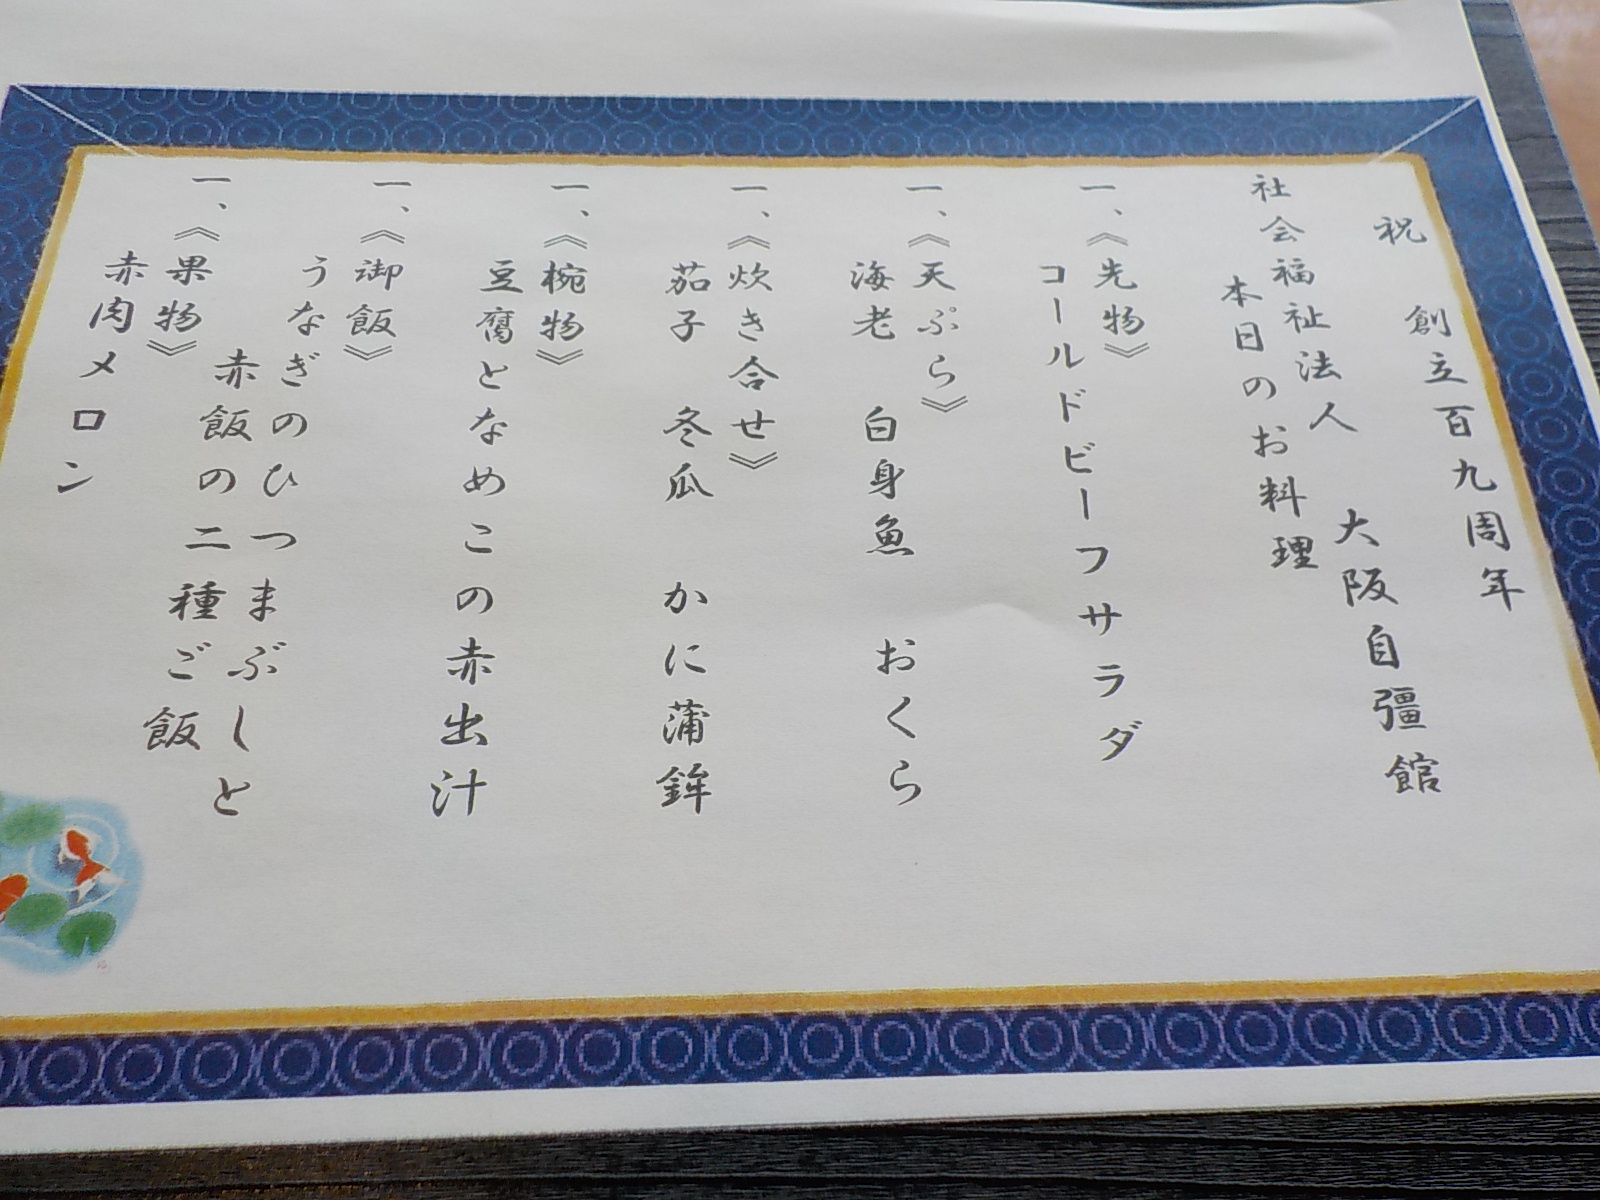 祝　創立百九周年
社会福祉法人　大阪自彊館
本日のお料理
一、《先物》
コールドビーフサラダ
一、《天ぷら》
海老　白身魚　おくら
一、《炊き合せ》
茄子　冬瓜　かに蒲鉾
一、《椀物》
豆腐となめこの赤出汁
一、《御飯》
うなぎのひつまぶしと
赤飯の二種ご飯
一、《果物》
赤肉メロン